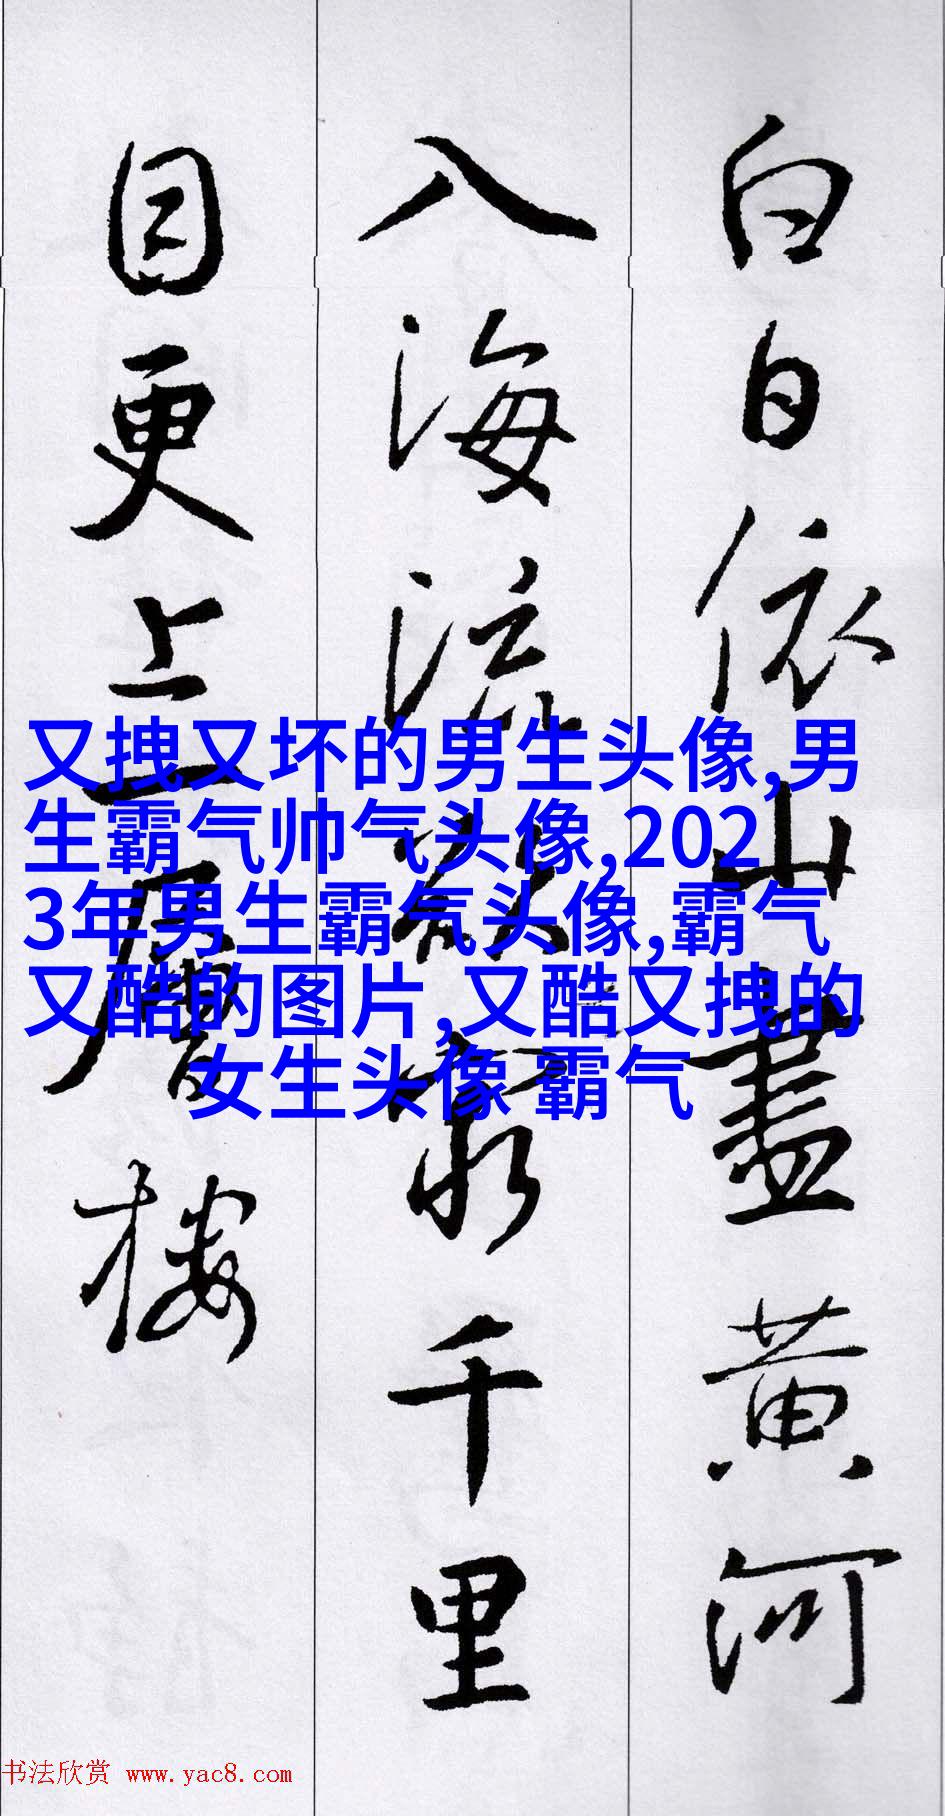 白日依山盡黄河
入海流欲窮千里
目更上一層樓
又拽又坏的男生头像,男
生霸气帅气头像,202
3年男生霸气头像,霸气
又酷的图片,又酷又拽的
女生头像 霸气
书法欣赏 www.yac8.com